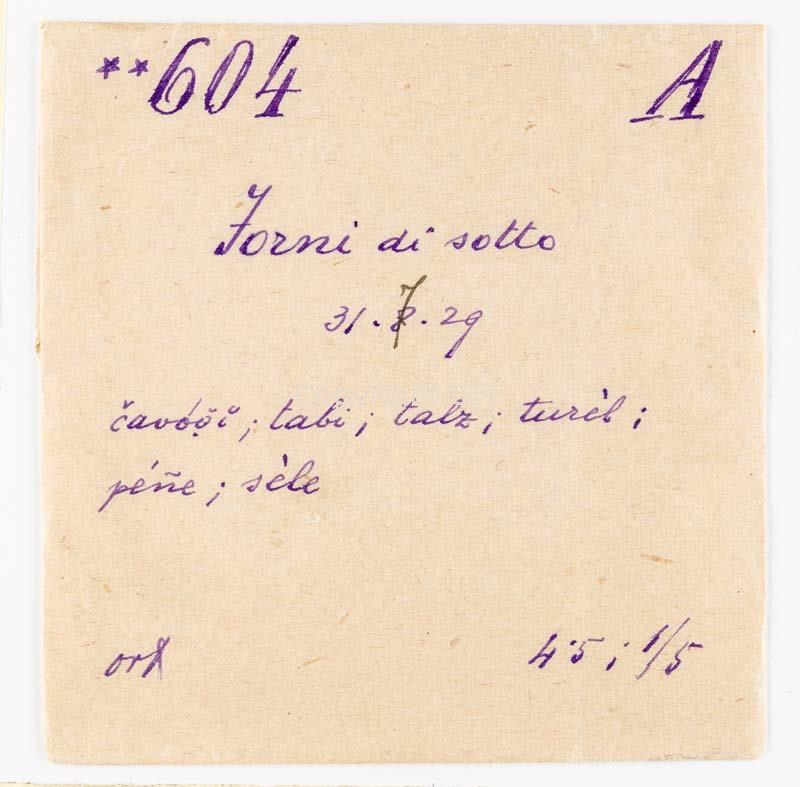 **604 A
Forni di sotto
31.7.29
; tabi; talz; turèl;
péñe; sèle
4·5; 1/5